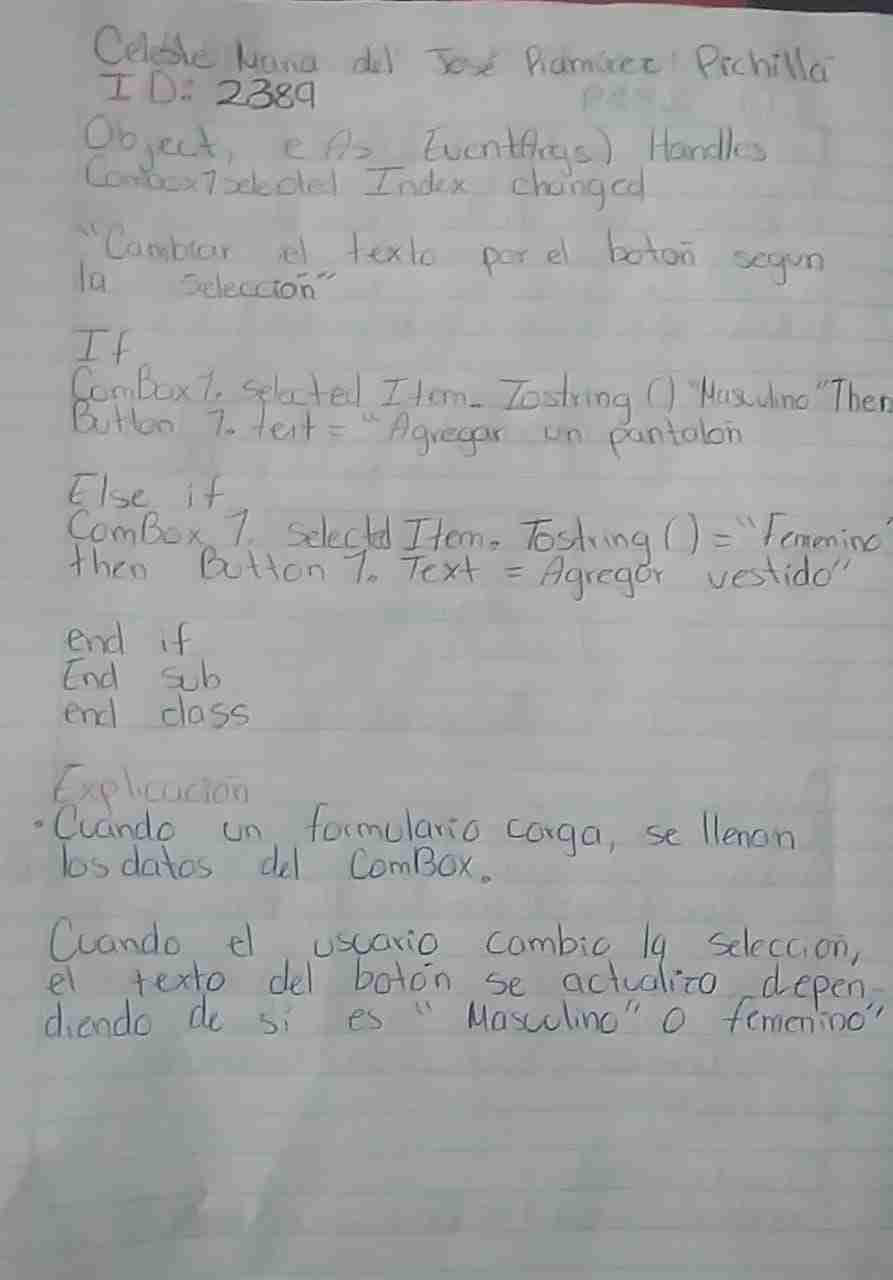 Celeste Maria del José Ramírez Pichillá
ID: 2389
Object, e As EventArgs) Handles
Combox1selected Index changed
"Cambiar el texto por el botoñ segun
la Selección"
If
ComBox1. Selected Item. Tostring () "Masculino" Then
Button 1. text = "Agregar un pantalon
Else if
ComBox 1. Selectd Item. Tostring () = "Femenino"
then Button 1. Text = Agregar vestido"
end if
End sub
end class
Explicacion
• Cuando un formulario carga, se llenan
los datos del ComBox.
Cuando el usuario cambio la Seleccion,
el texto del botón se actualizo depen-
diendo de si es "Masculino" o femenino"